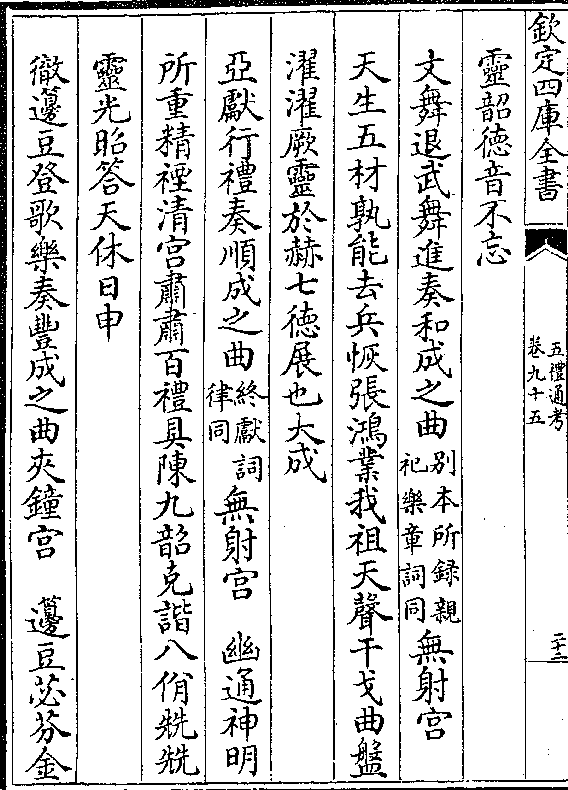 欽定四庫全書
五禮通考
卷九十五
二十二
靈韶德音不忘
文舞退武舞進奏和成之曲别本所録親祀樂章詞同無射宫
天生五材孰能去兵恢張鴻業我祖天聲干戈曲盤
濯濯厥靈於赫七德展也大成
亞獻行禮奏順成之曲終獻詞律同無射宫　幽通神明
所重精禋清宫肅肅百禮具陳九韶克諧八佾兟兟
靈光昭答天休日申
徹籩豆登歌樂奏豐成之曲夾鐘宫　籩豆苾芬金